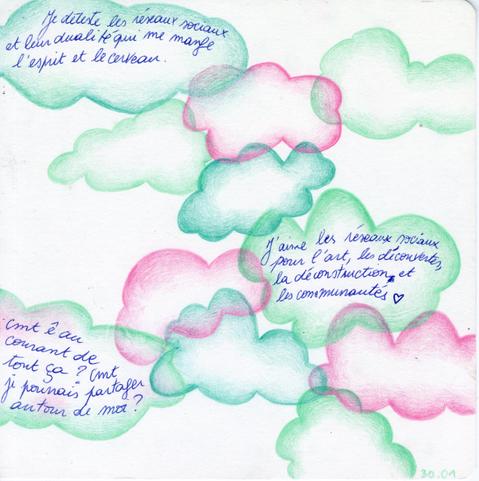 Je déteste les réseaux sociaux
et leur dualité qui me mange
l'esprit et le cerveau.
J'aime les réseaux sociaux
pour l'art, les découvertes,
la déconstruction, et
les communautés ♡
cmt ê au
courant de
tout ça ? Cmt
je pourrais partager
autour de moi ?
30.01